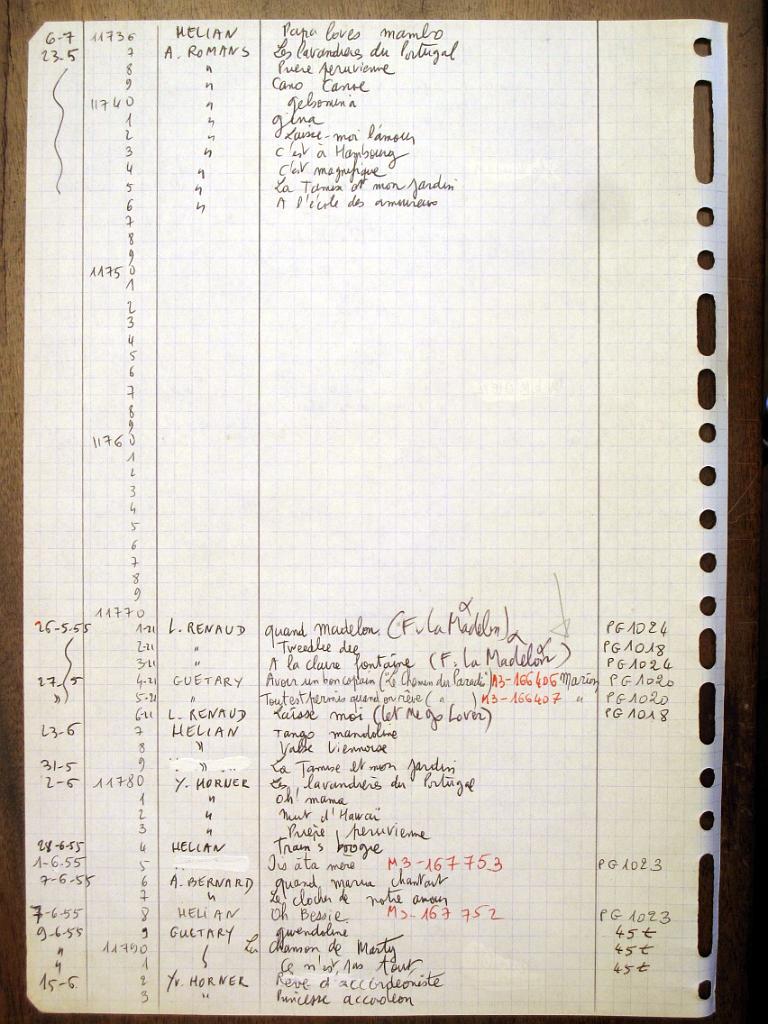 6-7 11736 HELIAN Papa loves mambo
23.5 7 A. ROMANS Les lavandières du Portugal
8 " Prière péruvienne
9 " Cano Canoe
11740 " Gelsomina
1 " gina
2 " Laisse-moi l'amour
3 " C'est à Hambourg
4 " C'est magnifique
5 " La Tamise et mon jardin
6 " A l'école des amoureux
7
8
9
11750
1
2
3
4
5
6
7
8
9
11760
1
2
3
4
5
6
7
8
9
11770
26-5-55 1-21 L. RENAUD quand Madelon (F. La Madelon) PG1024
2-21 " Tweedlee dee PG1018
3-21 " A la claire fontaine (F. La Madelon) PG1024
27.5 4-21 GUETARY Avoir un bon copain ("Le Chemin du Paradis") M3-166406 Marion PG1020
" 5-21 " Tout est permis quand on rêve ( " ) M3-166407 " PG1020
6-21 L. RENAUD Laisse moi (Let Me go Lover) PG1018
23-6 7 HELIAN Tango mandoline
8 " Valse Viennoise
31-5 9 La Tamise et mon jardin
2-6 11780 Y. HORNER Les lavandières du Portugal
1 " Oh! mama
2 " Nuit d'Hawaï
3 " Prière péruvienne
28-6-55 4 HELIAN Train's boogie
1-6-55 5 Dis à ta mère M3-167753 PG1023
7-6-55 6 A. BERNARD quand maria chantait
7 " Le clocher de notre amour
7-6-55 8 HELIAN Oh Bessie M3-167 752 PG1023
9-6-55 9 GUETARY gwendoline 45t
" 11790 La Chanson de Marty 45t
" 1 Ce n'est pas tout 45t
15-6 2 Yv. HORNER Rêve d'accordéoniste
3 " Princesse accordéon